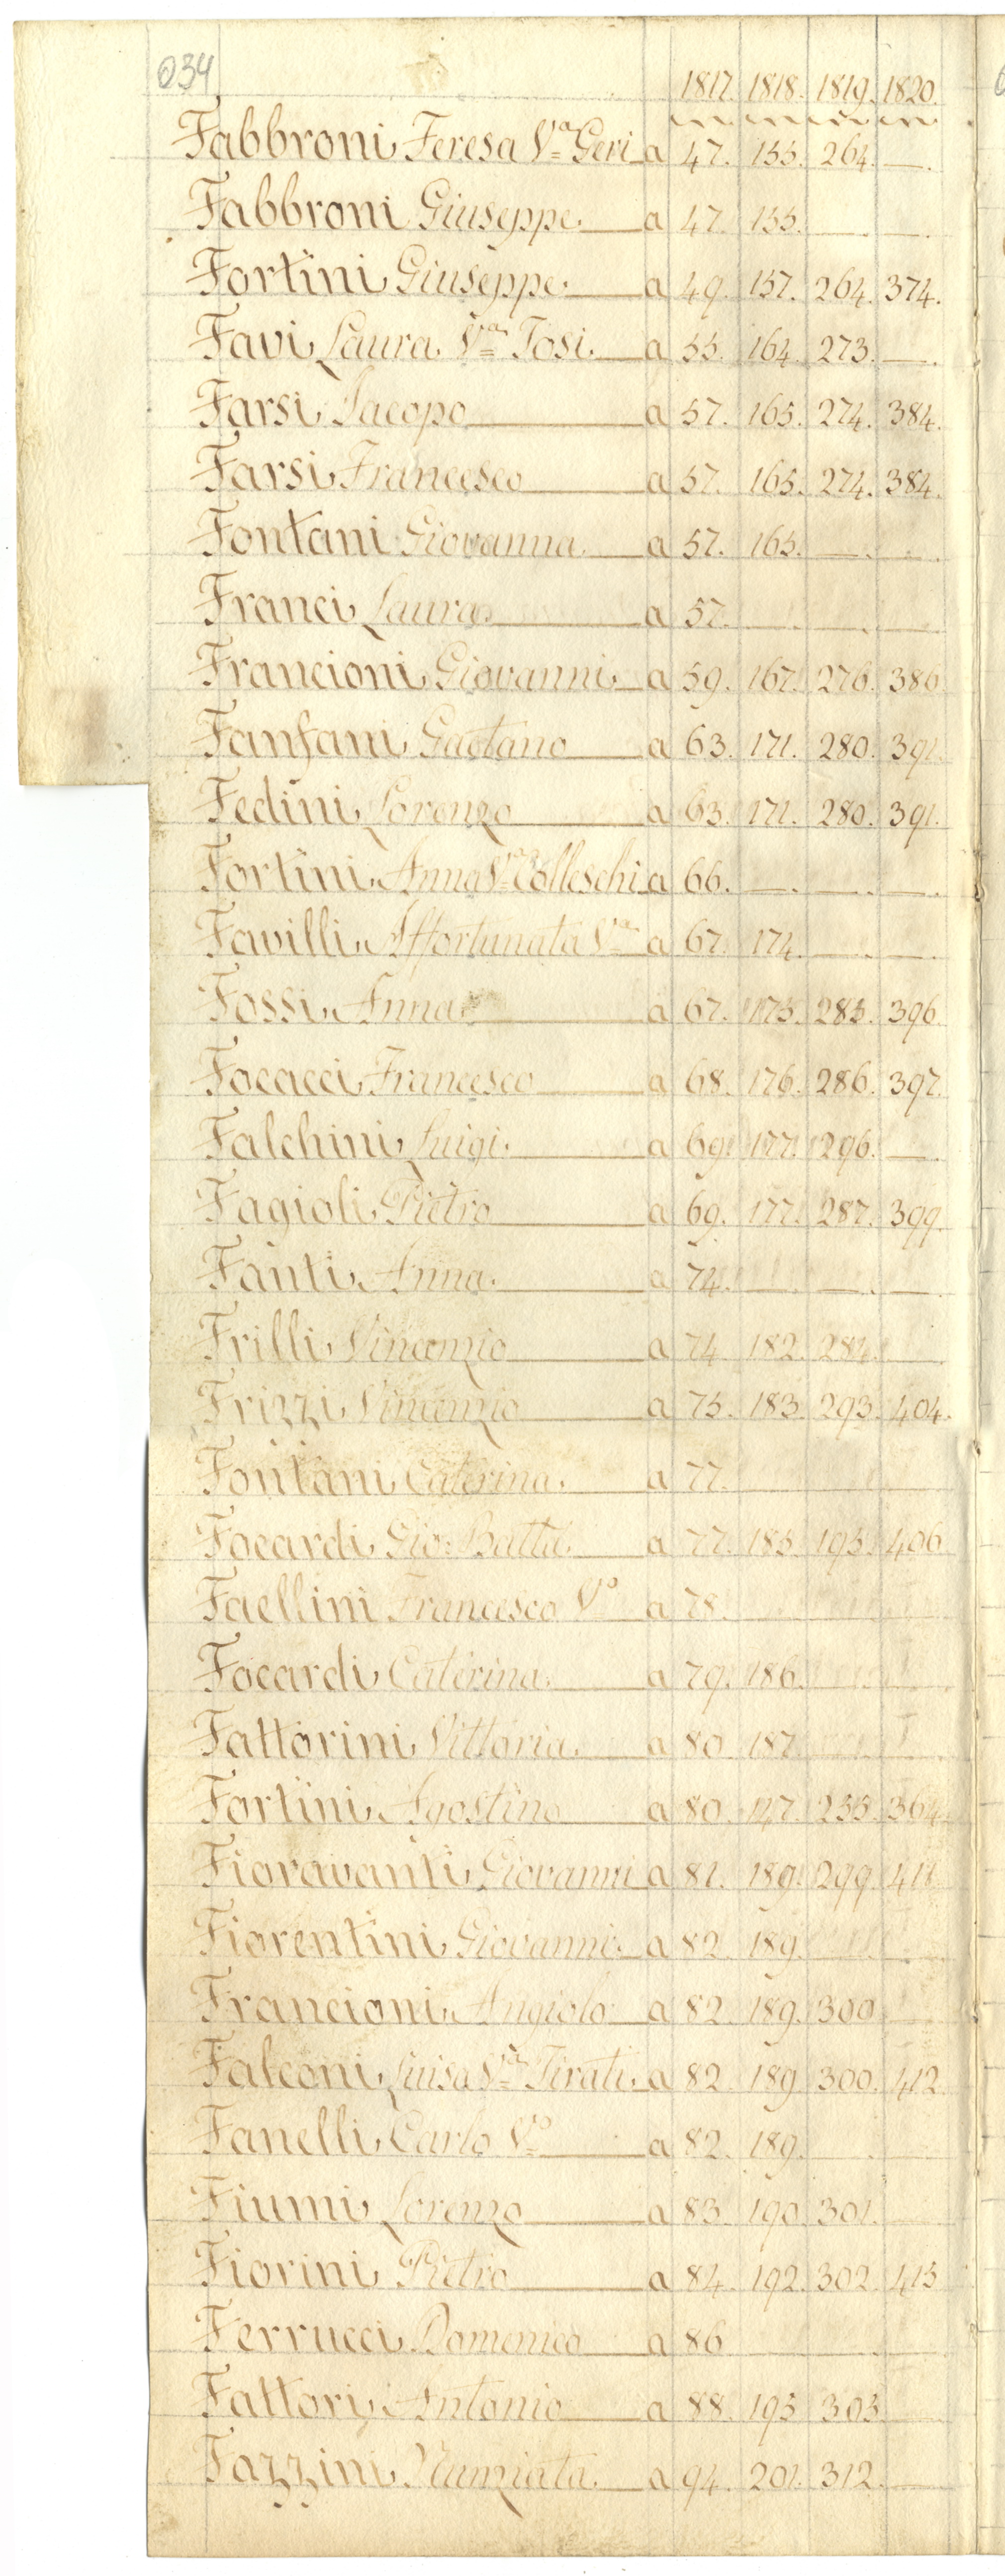 034
1817. 1818. 1819. 1820.
Fabbroni Teresa Vᵃ Geri a 47. 155. 264. —.
Fabbroni Giuseppe a 47. 155. —. —.
Fortini Giuseppe a 49. 157. 264. 374.
Favi Laura Vᵃ Tosi a 55. 164. 273. —.
Farsi Jacopo a 57. 165. 274. 384.
Farsi Francesco a 57. 165. 274. 384.
Fontani Giovanna a 57. 165. —. —.
Franci Laura a 57. —. —. —.
Francioni Giovanni a 59. 167. 276. 386
Fanfani Gaetano a 63. 171. 280. 391.
Fedini Lorenzo a 63. 171. 280. 391.
Fortini Anna Vᵃ Colleschi a 66. —. —. —.
Favilli Affortunata Vᵃ a 67. 174. —. —.
Fossi Anna a 67. 175. 285. 396.
Focacci Francesco a 68. 176. 286. 397.
Falchini Luigi a 69. 177. 296. —.
Fagioli Pietro a 69. 177. 287. 399.
Fanti Anna a 74. —. —. —.
Frilli Vincenzio a 74. 182. 284.
Frizzi Vincenzio a 75. 183. 293. 404.
Fontani Caterina a 77.
Focardi Gio: Batta a 77. 185. 195. 406
Faellini Francesco Vº a 78.
Focardi Caterina a 79. 186.
Fattorini Vittoria a 80. 187.
Fortini Agostino a 80. 147. 255. 364
Fioravanti Giovanni a 81. 189. 299. 411
Fiorentini Giovanni a 82. 189.
Francioni Angiolo a 82. 189. 300
Falconi Luisa Vᵃ Tirati a 82. 189. 300. 412
Fanelli Carlo Vº a 82. 189.
Fiumi Lorenzo a 83. 190. 301.
Fiorini Pietro a 84. 192. 302. 413
Ferrucci Domenico a 86
Fattori Antonio a 88. 195 303
Fazzini Nunziata a 94. 201. 312. —